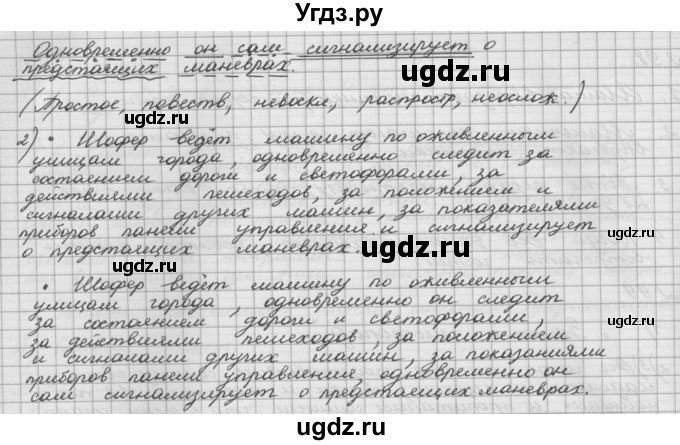 Угдз.ру
Одновременно он сам сигнализирует о
предстоящих маневрах.
ugdz.ru
ugdz.ru
(Простое, повеств, невоскл, распростр, неослож.)
2) • Шофер ведёт машину по оживленным
улицам города, одновременно следит за
состоянием дороги и светофорами, за
ugdz.ru
действиями пешеходов, за положением и
сигналами других машин, за показателями
приборов панели управления и сигнализирует
ugdz.ru
о предстоящих маневрах.
ugdz.ru
• Шофер ведёт машину по оживленным
улицам города, одновременно он следит
за состоянием дороги и светофорами,
ugdz.ru
за действиями пешеходов, за положением
и сигналами других машин, за показаниями
приборов панели управления, одновременно он
сам сигнализирует о предстоящих маневрах.
ugdz.ru